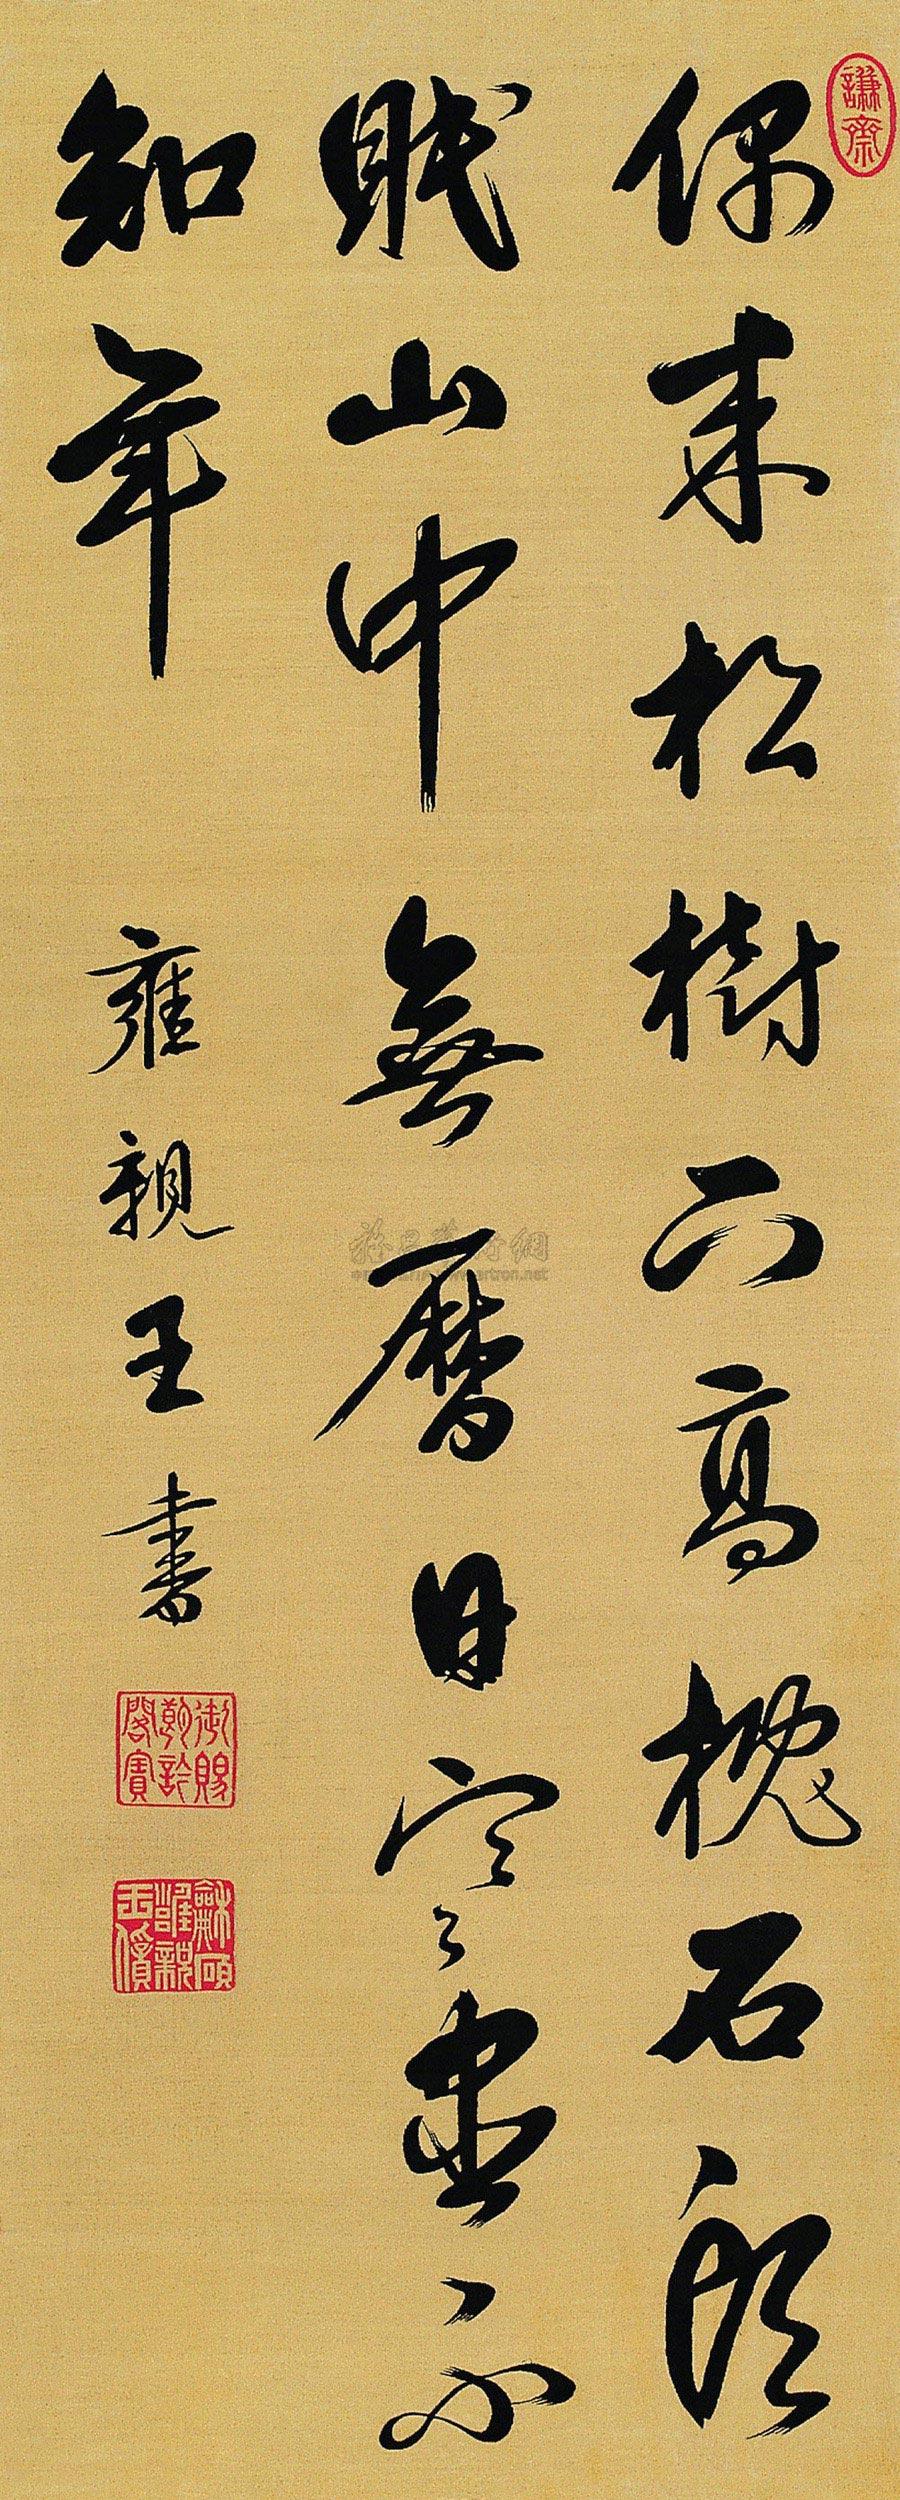 謙齋
偶來松樹下高枕石頭
眠山中無曆日寒盡不
知年
雍親王書
御賜朗吟閣寶
龢碩雝親王寶
artron.net